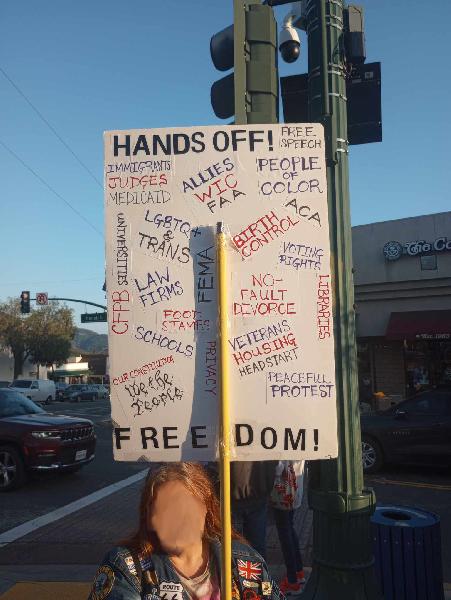 HANDS OFF!
FREE
SPEECH
IMMIGRANTS
JUDGES
MEDICAID
ALLIES
WIC
FAA
PEOPLE
OF
COLOR
ACA
UNIVERSITIES
LGBTQ+
&
TRANS
BIRTH
CONTROL
VOTING
RIGHTS
FEMA
CFPB
LAW
FIRMS
NO-
FAULT
DIVORCE
LIBRARIES
FOOD
STAMPS
SCHOOLS
VETERANS
HOUSING
HEADSTART
PRIVACY
OUR CONSTITUTION
We the
People
PEACEFUL
PROTEST
FREEDOM!
The Co
ROUTE
66